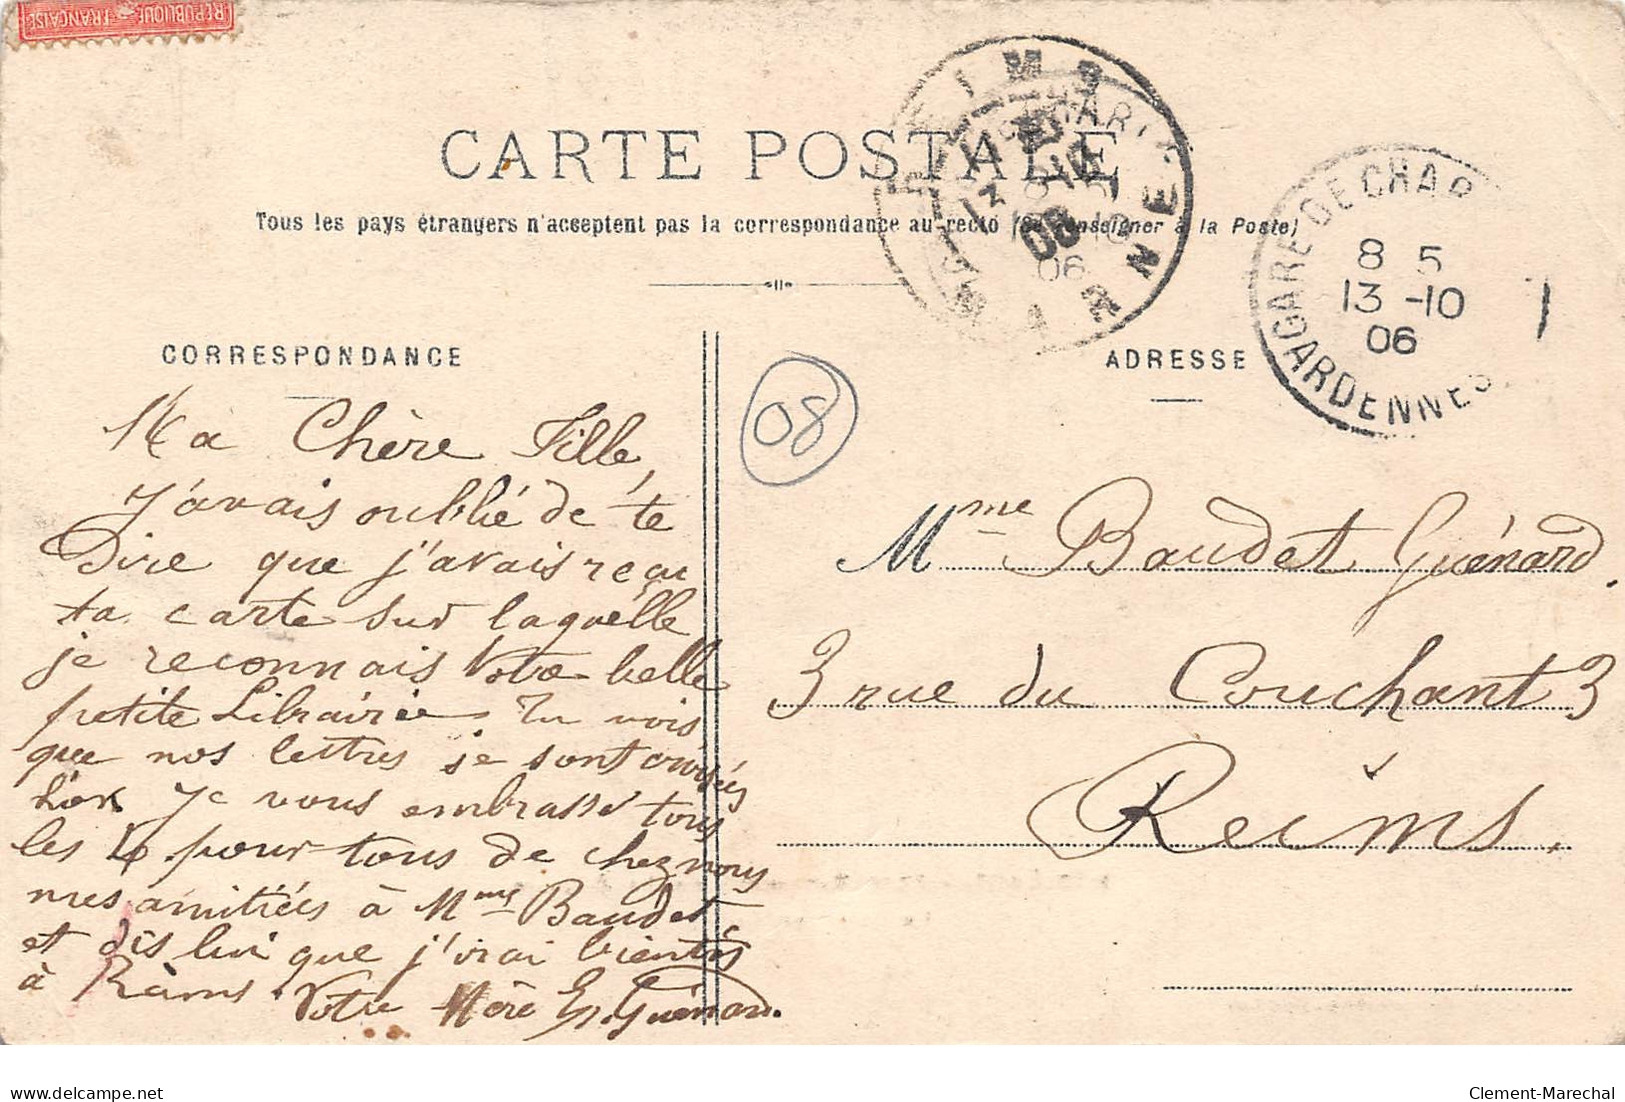 REPUBLIQUE FRANÇAISE
CARTE POSTALE
Tous les pays étrangers n'acceptent pas la correspondance au recto (Se renseigner à la Poste)
REIMS
MARNE
13 -10
06
GARE DE CHAR
8 5
13 -10
06
ARDENNES
CORRESPONDANCE
ADRESSE
08
Ma Chère Fille,
J'avais oublié de te
Dire que j'avais reçu
ta carte sur laquelle
je reconnais Votre belle
petite Librairie Tu vois
que nos lettres se sont croisés
Je vous embrasse tous
les 4 pour tous de chez nous
mes amitiées à Mme Baudet
et dis lui que j'irai bientôt
à Reims. Votre Mère Guénard.
Mme Baudet Guénard.
3 rue du Couchant 3
Reims.
delcampe.net
Clement-Marechal